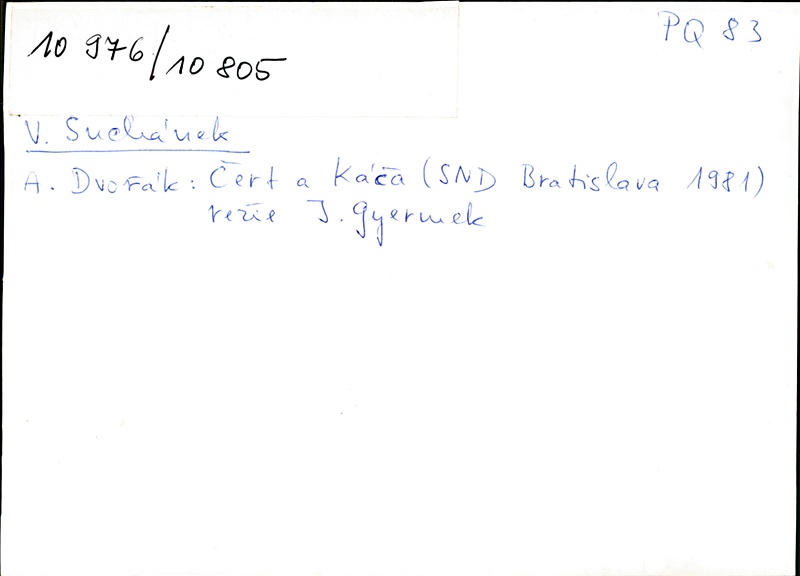 10 976/10 805
PQ 83
V. Suchánek
A. Dvořák: Čert a Káča (SND Bratislava 1981)
režie J. Gyermek